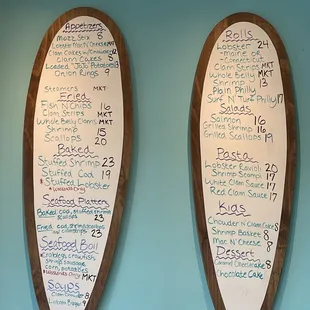 Appetizers
Mozz Stix 8
Lobster Mac N Cheese MKT
Clam Cakes w/Chowder
Clam Cakes 8
Loaded Potato 13
Onion Rings 9
Steamers MKT
Fried
Fish N Chips 16
Clam Strips MKT
Whole Belly Clams MKT
Shrimp 15
Scallops 20
Baked
Stuffed Shrimp 23
Stuffed Cod 19
Stuffed Lobster
Seafood Platters
Baked cod, stuffed shrimp 23
Fried 23
Seafood Boil
shrimp sausage
corn, potatoes
MKT
Soups
Clam Chowder 8
Rolls
Lobster 24
Maine or
Connecticut
Clam Strip MKT
Whole Belly MKT
Shrimp 13
Plain Philly
Surf N Turf Philly 17
Salads
Salmon 16
Grilled Shrimp 16
Grilled Scallops 19
Pasta
Lobster Ravioli 20
Shrimp Scampi 17
White Clam Sauce 17
Red Clam Sauce 17
Kids
Chowder N Clam Cake 8
Shrimp Basket 8
Mac N Cheese 8
Dessert
Carmel Cheesecake 8
Chocolate Cake